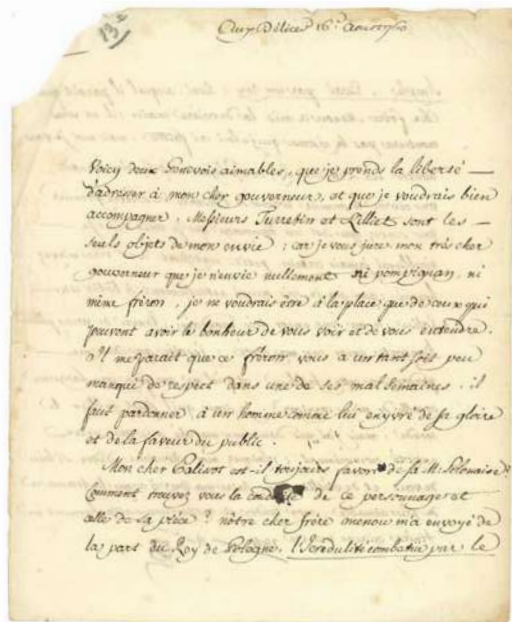 13e
Aux Délices 16e. Aoust 1760
Voicy deux Genevois aimables, que je prends la liberté
d'adresser à mon cher gouverneur, et que je voudrais bien
accompagner. Messieurs Turretin et Lilliet sont les
seuls objets de mon envie ; car je vous jure mon très cher
gouverneur que je n'envie nullement ni pompignan, ni
même fréron, je ne voudrais être à la place que de ceux qui
peuvent avoir le bonheur de vous voir et de vous entendre.
Il me parait que ce fréron, vous a un tant sois peu
manqué de respect dans une de ses mal Semaines. il
faut pardonner à un homme comme lui enyvré de sa gloire
et de la faveur du public.
Mon cher Palissot est-il toujours favori de sa M: Polonaise?
Comment trouvez vous la conduite de ce personnage et
celle de sa piéce? nôtre cher frère menou m'a envoyé de
la part du Roy de Pologne, l'Incredulité combatüe par le